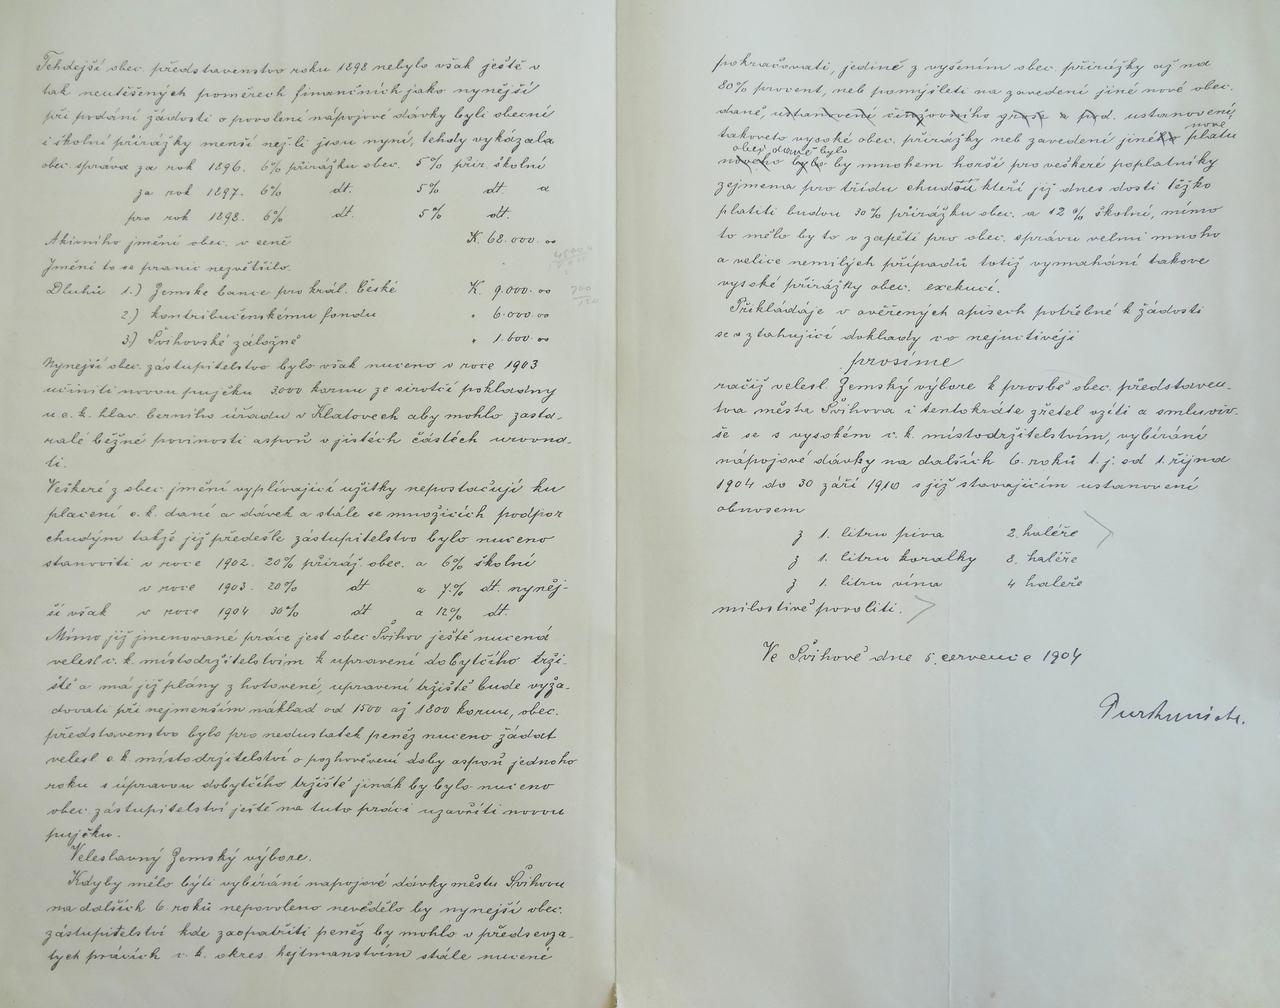 Tehdejší obec. představenstvo roku 1898 nebylo však ještě v
tak neutěšených poměrech finančních jako nynější
při podání žádosti o povolení nápojové dávky byli obecní
i školní přirážky menší nej-li jsou nyní, tehdy vykázala
obec. správa za rok 1896. 6% přirážku obec. 5% přir školní
za rok 1897. 6% dt. 5% dt a
pro rok 1898. 6% dt. 5% dt.
Aktivního jmění obec. v ceně K. 68.000.00
Jmění to se pranic nezvětšilo.
Dluhů 1.) Zemske bance pro král. České K. 9.000.00
2.) kontribučenskému fondu " 6.000.00
3) Švihovské záložně " 1.600.00
Nynejší obec. zástupitelstvo bylo však nuceno v roce 1903
učiniti novou pujčku 3000 korun ze sirotčí pokladny
u c. k. hlav. berního úřadu v Klatovech aby mohlo zasta-
ralé běžné povinosti aspoň v jistéch částéch urovna-
ti.
Veškeré z obec jmění vyplívající užitky nepostačují ku
placení c. k. daní a dávek a stále se množících podpor
chudým takže již předešle zástupitelstvo bylo nuceno
stanoviti v roce 1902. 20% přiráž. obec. a 6% školní
v roce 1903. 20% dt a 7% dt. nyněj-
ší však v roce 1904 30% dt a 12% dt.
Mimo již jmenované práce jest obec Švihov ještě nucená
velesl c. k. místodržitelstvím k upravení dobytčího trži-
ště a má již plány zhotovené, upravení tržiště bude vyža-
dovati při nejmenším náklad od 1500 až 1800 korun, obec.
představenstvo bylo pro nedostatek peněz nuceno žádat
velesl c. k. místodržitelství o poshověvení doby aspoň jednoho
roku s úpravou dobytčího tržiště jinák by bylo nuceno
obec zástupitelství ještě na tuto práci uzavříti novou
pujčku.
Veleslavný Zemský výbore.
Kdyby mělo býti vybírání napojové dávky městu Švihovu
na dalších 6 roků nepovoleno nevědělo by nynejší obec.
zástupitelství kde zaopatřiti peněz by mohlo v předsevza-
tych prácích c. k. okres. hejtmanstvím stále nucené
pokračovati, jedině z vyšením obec. přirážky až na
80% procent, neb pomýšleti na zavedení jiné nové obec.
daně, ustanovení činžovního groše a pod. ustanovení,
nové
takoveto vysoké obec. přirážky neb zavedení jiného platu
obec. daně bylo
nového bylo by mnohem horší pro veškeré poplatníky
zejmena pro třídu chudší kteří již dnes dosti těžko
platiti budou 30% přirážku obec. a 12% školní, mimo
to mělo by to v zapětí pro obec. správu velmi mnoho
a velice nemilých případů totiž vymahání takove
vysoké přirážky obec. exekucí.
Přikládáje v ověřených opisech potřebné k žádosti
se vztahující doklady co nejuctivěji
prosíme
račiž velesl Zemský výbore k prosbě obec. představen-
tva města Švihova i tentokráte zřetel vzíti a smluviv-
še se s vysokém c. k. místodržitelstvím, vybírání
nápojové dávky na dalších 6 roků t. j. od 1. října
1904 do 30 září 1910 s již stavajicím ustanovení
obnosem
z 1. litru piva 2. haléře
z 1. litru koralky 8. haléře
z 1. litru vína 4 haleře
milostivě povoliti.
Ve Švihově dne 5. července 1904